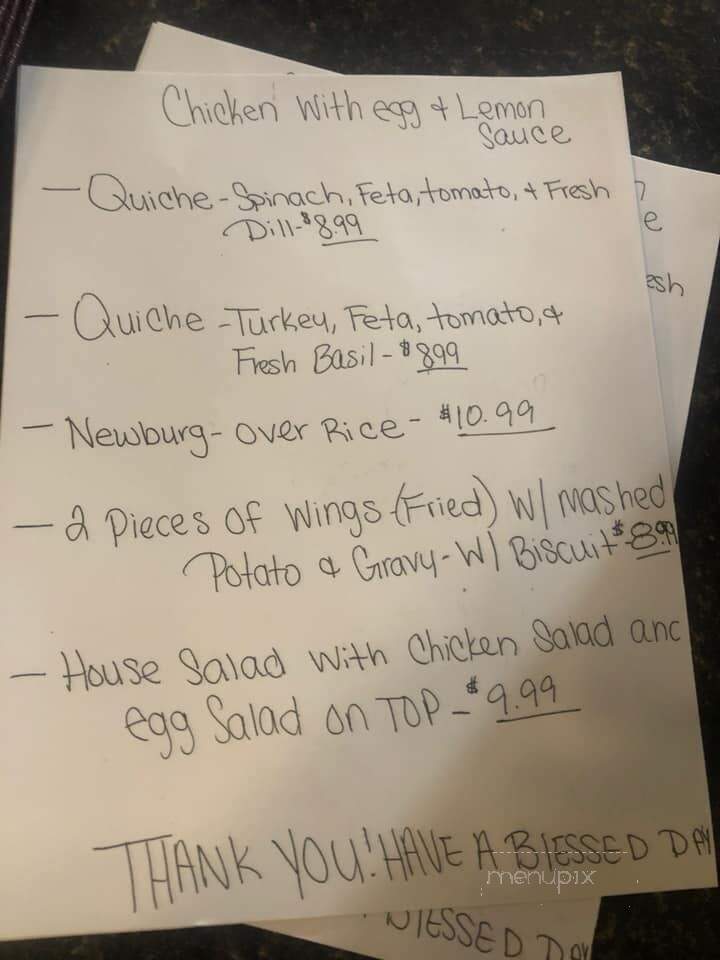 Chicken With egg & Lemon
Sauce
- Quiche - Spinach, Feta, tomato, & Fresh
Dill - $8.99
- Quiche - Turkey, Feta, tomato, &
Fresh Basil - $899
- Newburg - over Rice - $10.99
- 2 Pieces of Wings (Fried) W/ mashed
Potato & Gravy - W/ Biscuit $8.99
- House Salad with Chicken Salad and
egg Salad on TOP - $9.99
THANK YOU! HAVE A BlESSED DAY
menupix
e
esh
BlESSED DAY